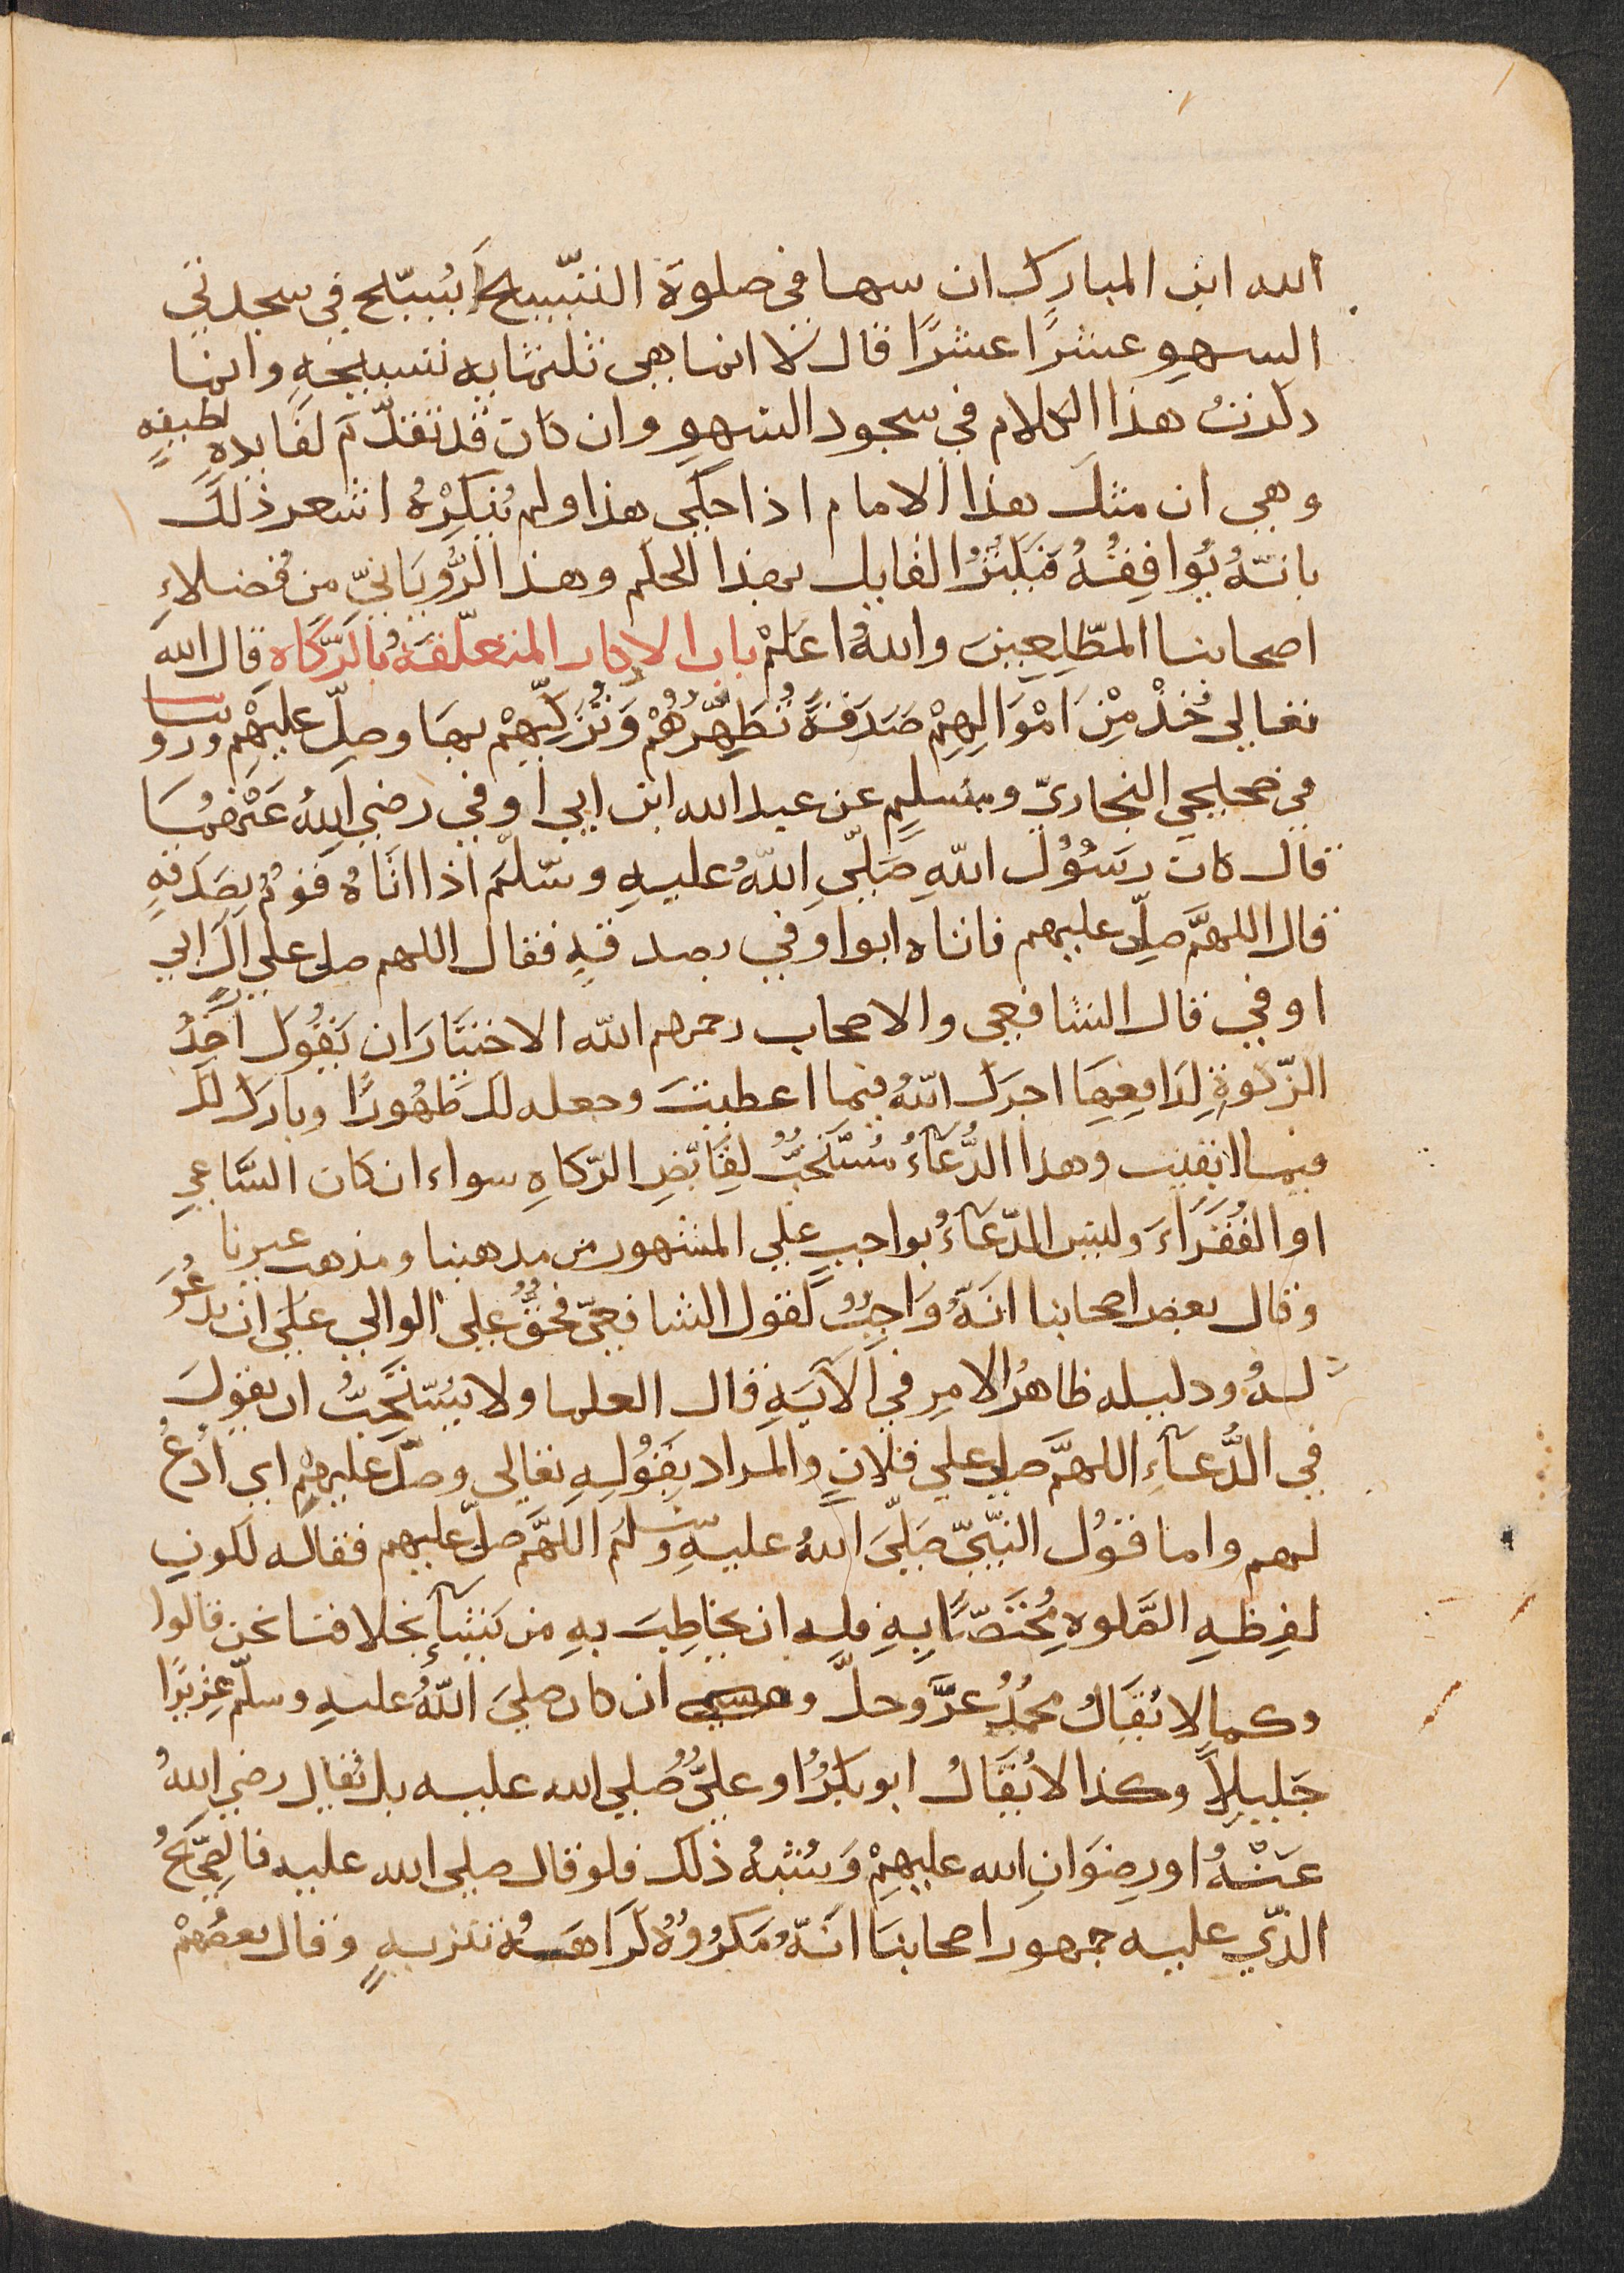 الله ابن المبارك ان سها في صلوة التسبيح أيسبّح في سجدتي
السهو عشرًا عشرًا قال لا انما هي ثلثماية تسبيحةٍ وانما
ذكرتُ هذا الكلام في سجود السّهوِ وان كان قد تقدّم لفايدةٍ لطيفةٍ
وهي ان مثل هذا الامام اذا حكى هذا ولم يُنكِرْهُ اشعر ذلك
بانّهُ يُوافِقُهُ فيكثرُ القايل بهذا الحكم وهذا الرُّويَانيّ من فُضلاءِ
اصحابنا المطّلِعِينَ واللهُ اعلمْ باب الاذكار المتعلّقةُ بالزّكاه قال الله
تعالى خُذْ مِنْ اَمْوَالِهِمْ صَدَقةً تُطَهِّرُهُمْ وَتُزَكِّيهِمْ بهَا وصلّ عليهْم وروينا
في صحيحي البخاريّ ومسلمٍ عن عبد الله ابن ابي اوفى رضي اللهُ عَنْهُمَا
قال كان رسُوُل اللهِ صَلّى اللهُ عليهِ وسّلّم اذا اتَاهُ قومٌ بصَدَقةٍ
قال اللهمَّ صلِّ عليهم فاتاه ابوا اوفى بصدقتهِ فقال اللهم صل على آل ابي
اوفى قال الشافعي والاصحاب رحمهم الله الاختيَار ان يَقُول آخِذُ
الزّكوةِ لِدَافِعِهَا اجرك اللهُ فيما اعطيت وجعله لك طهُورًا وبارك لك
فيما ابقيت وهذا الدُّعَآءُ مُسْتَحَبٌّ لِقَابضِ الزّكاهِ سواء ان كان السَّاعي
او الفُقَرَاءَ وليس الدّعَآءُ بواجبٍ على المشهور من مذهبنا ومذهب غيرنا
وقال بعض اصحابنا انّهُ وَاجِبٌ لقول الشافعيّ فحقٌّ على الوالي عَلَى ان يدعُوَ
لهُ ودليله ظاهرُ الامرِ في الآيَهِ قال العلما ولا يُسْتحَبُّ ان يقول
في الدُّعَآءِ اللهمَّ صل على فلانٍ والمراد بِقَوُلِهِ تعالى وصلّ عليهمْ اي ادعُ
لهم واما قوُل النبّيّ صَلّى اللهُ عليهِ وسلم اللهَّم صلّ عليهم فقاله لكونِ
لفِظهِ الصَّلوه مُختَصّاً بِهِ فله ان يخاطِبَ بهِ من يَشَآء بخلافنا نحن قالوا
وكما لا يُقَالُ محمدٌ عزّ وجلّ وان كان صلى اللهُ عليهِ وسلّم عزيزًا
جَليِلاً وكذا لا يُقَالُ ابو بكرٌ او عليٌّ صلى الله عليه بل يُقال رضي اللهُ
عَنْهُ او رِضوَانِ الله عليهمْ وَشبهُ ذلك فلو قال صلى الله عليه فالصّحِيحُ
الذّي عليه جمهور اصحابنَا انّهُ مَكرُوهٌ كراهَةُ تنزيهٍ وقال بعضُهمْ